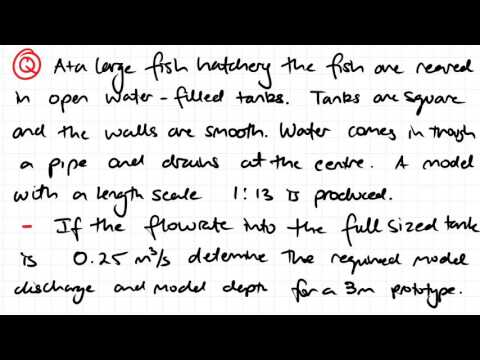 Q At a large fish hatchery the fish are reared
in open water-filled tanks. Tanks are square
and the walls are smooth. Water comes in through
a pipe and drains at the centre. A model
with a length scale 1:13 is produced.
- If the flowrate into the full sized tank
is 0.25 m³/s detemine the required model
discharge and model depth for a 3m prototype.